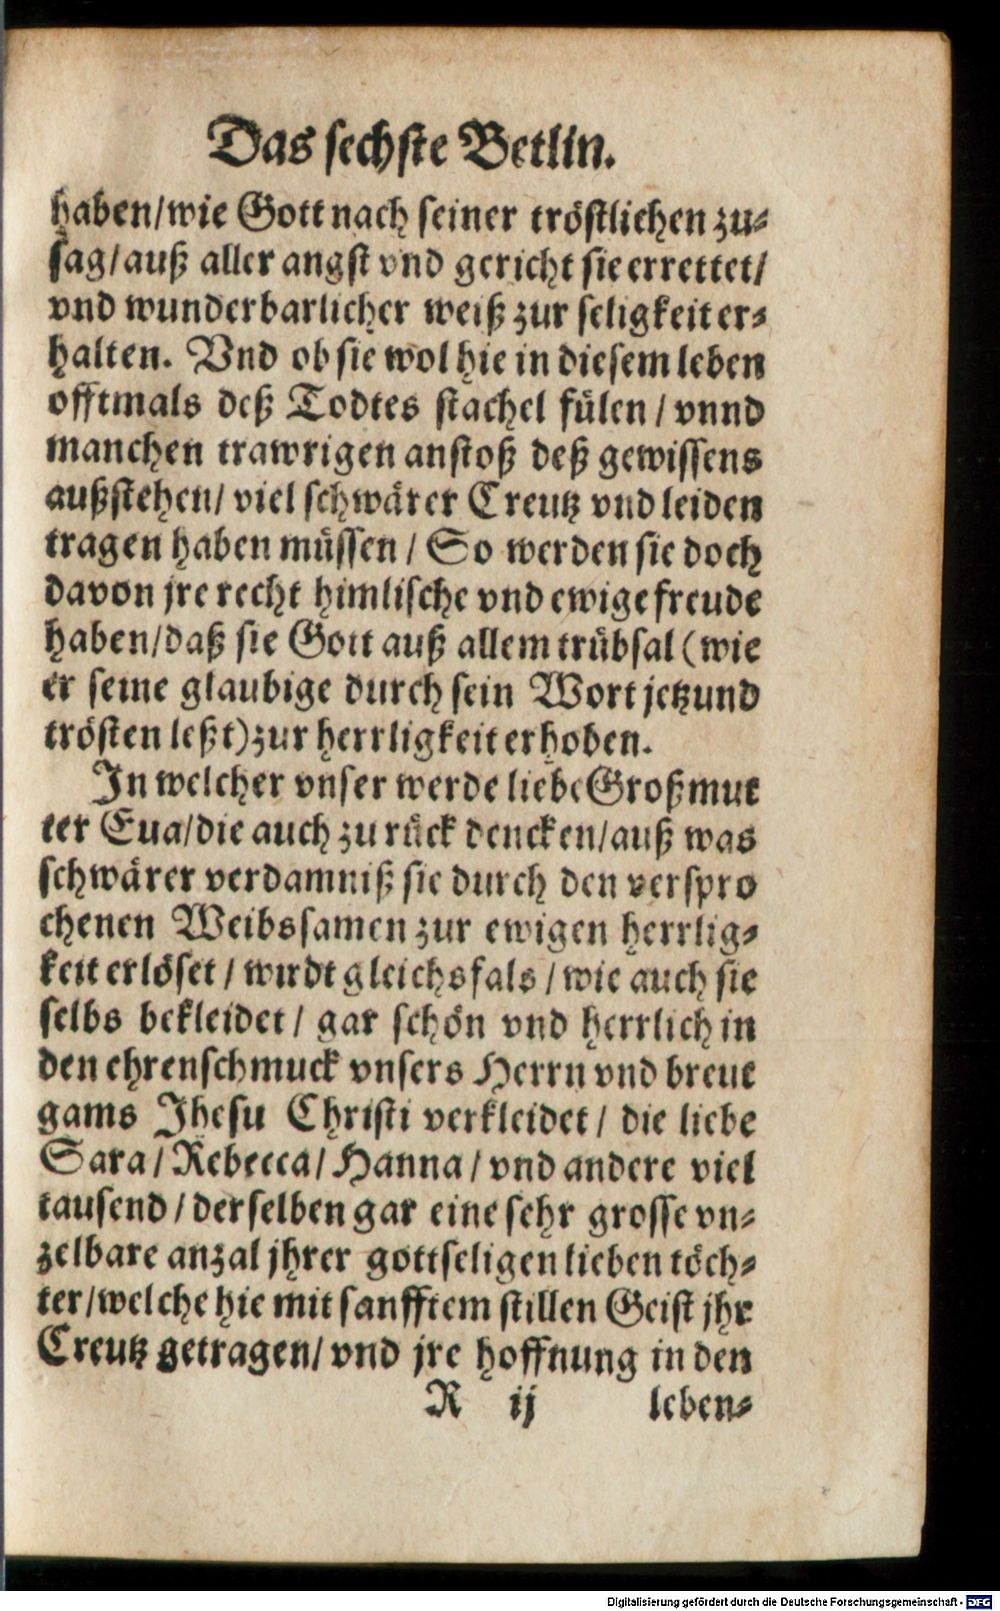 Das sechste Betlin.
haben/wie Gott nach seiner tröstlichen zu-
sag/auß aller angst vnd gericht sie errettet/
vnd wunderbarlicher weiß zur seligkeit er-
halten. Vnd ob sie wol hie in diesem leben
offtmals deß Todtes stachel fülen/vnnd
manchen trawrigen anstoß deß gewissens
außstehen/viel schwärer Creutz vnd leiden
tragen haben müssen/So werden sie doch
davon jre recht himlische vnd ewige freude
haben/daß sie Gott auß allem trübsal (wie
er seine glaubige durch sein Wort jetzund
trösten leßt) zur herrligkeit erhoben.
In welcher vnser werde liebe Großmut
ter Eua/die auch zu rück dencken/auß was
schwärer verdamniß sie durch den verspro
chenen Weibssamen zur ewigen herrlig-
keit erlöset/wirdt gleichsfals/wie auch sie
selbs bekleidet/gar schön vnd herrlich in
den ehrenschmuck vnsers Herrn vnd breut
gams Jhesu Christi verkleidet/die liebe
Sara/Rebecca/Hanna/vnd andere viel
tausend/derselben gar eine sehr grosse vn-
zelbare anzal jhrer gottseligen lieben töch-
ter/welche hie mit sanfftem stillen Geist jhr
Creutz getragen/vnd jre hoffnung in den
R ij leben-
Digitalisierung gefördert durch die Deutsche Forschungsgemeinschaft - DFG